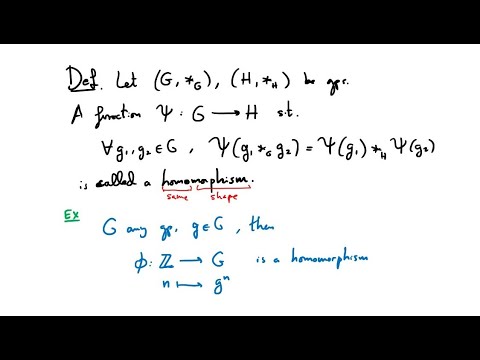 Def. Let (G, *_G), (H, *_H) be gps.
A function Ψ : G ⟶ H s.t.
∀ g₁, g₂ ∈ G , Ψ(g₁ *_G g₂) = Ψ(g₁) *_H Ψ(g₂)
is called a homomorphism.
same shape
Ex
G any gp, g ∈ G , then
ϕ: ℤ ⟶ G is a homomorphism
n ⟼ gⁿ